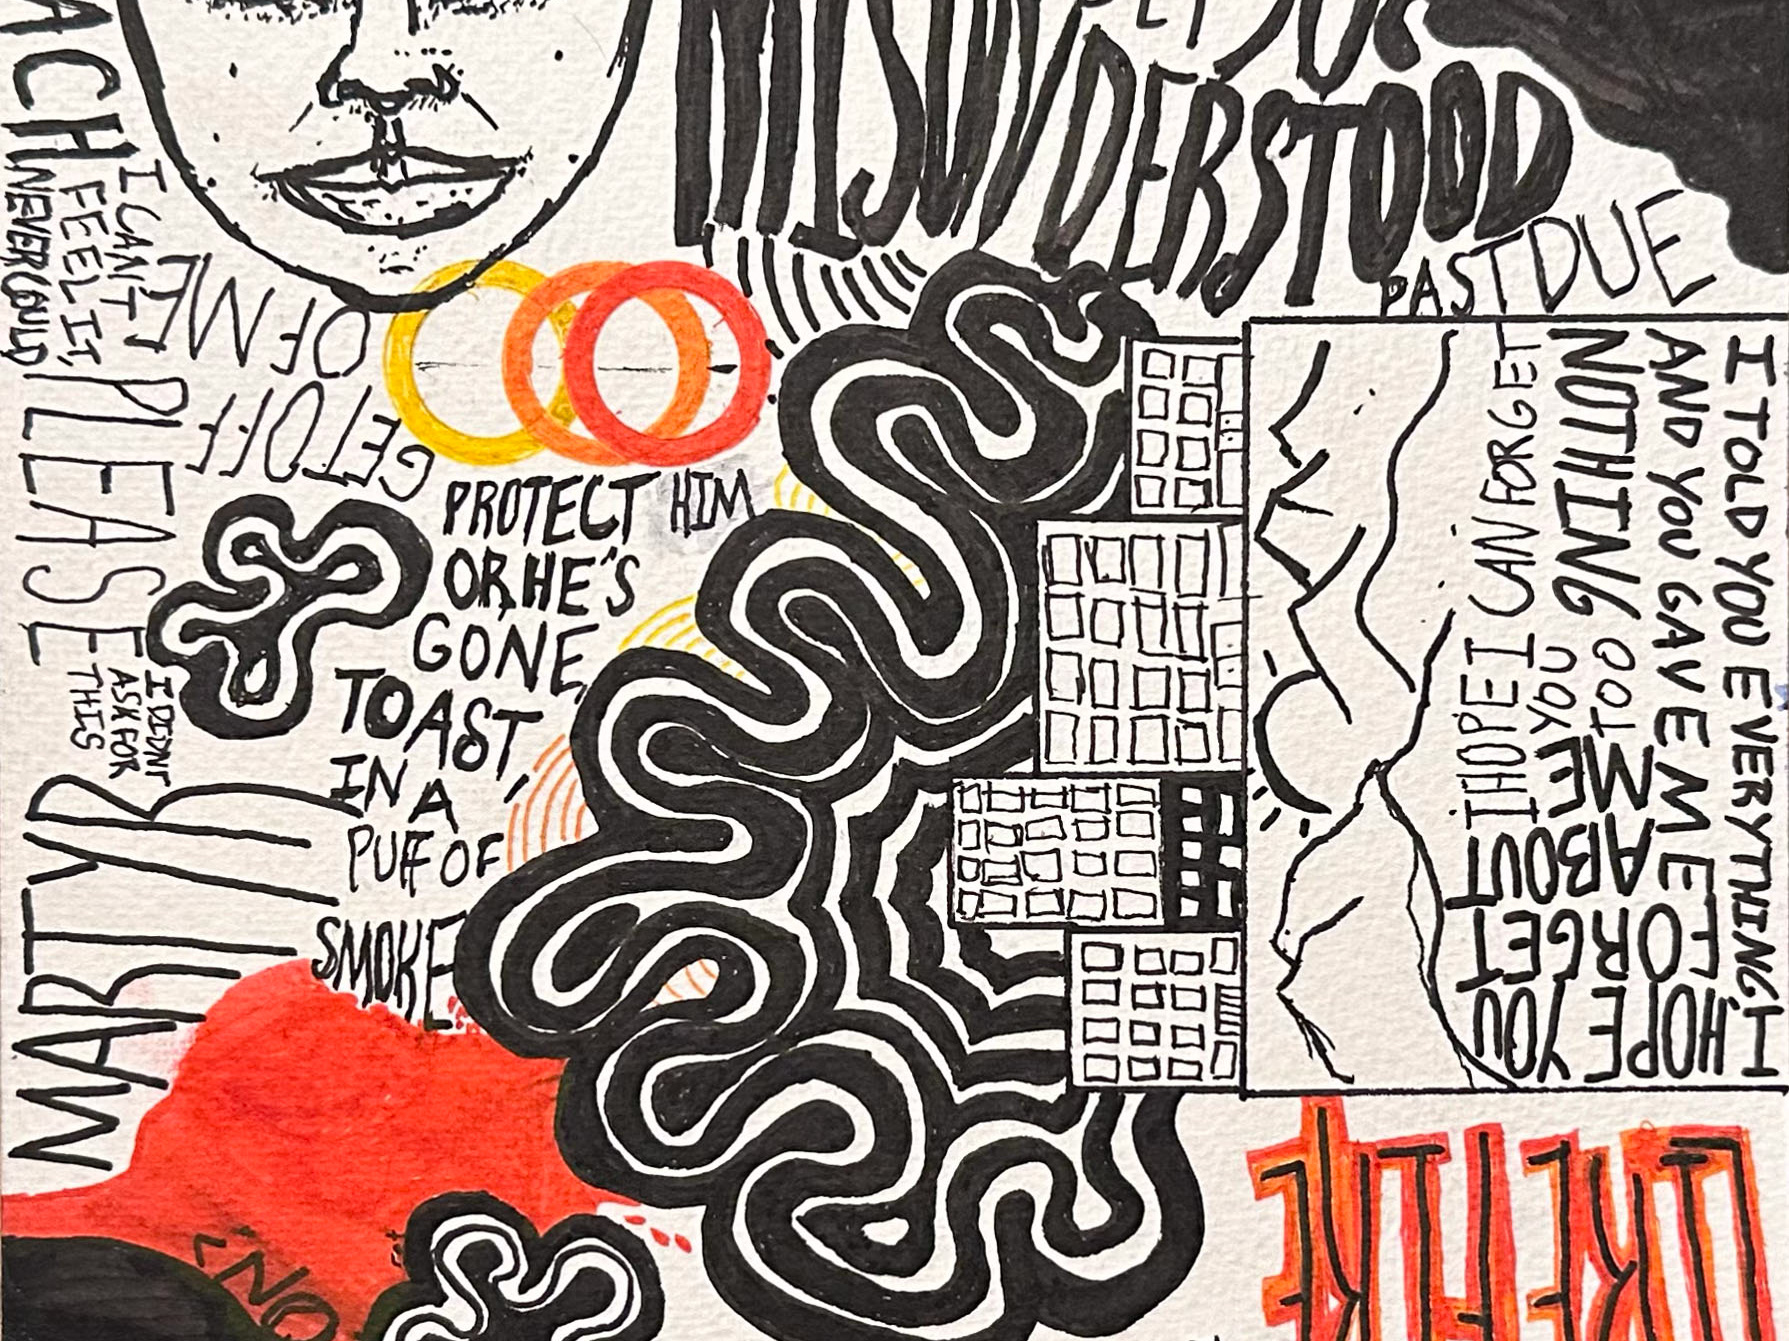 MISUNDERSTOOD
PAST DUE
NEVER COULD
I CAN'T
FEEL IT,
PLEASE
GET OFF
OF ME
I DIDNT
ASK FOR
THIS
MARTYR
PROTECT HIM
OR HE'S
GONE,
TOAST,
IN A
PUFF OF
SMOKE
I TOLD YOU EVERYTHING,
AND YOU GAVE ME
NOTHING
I HOPE I CAN FORGET
YOU
I HOPE YOU
FORGET
ABOUT
ME
TOO